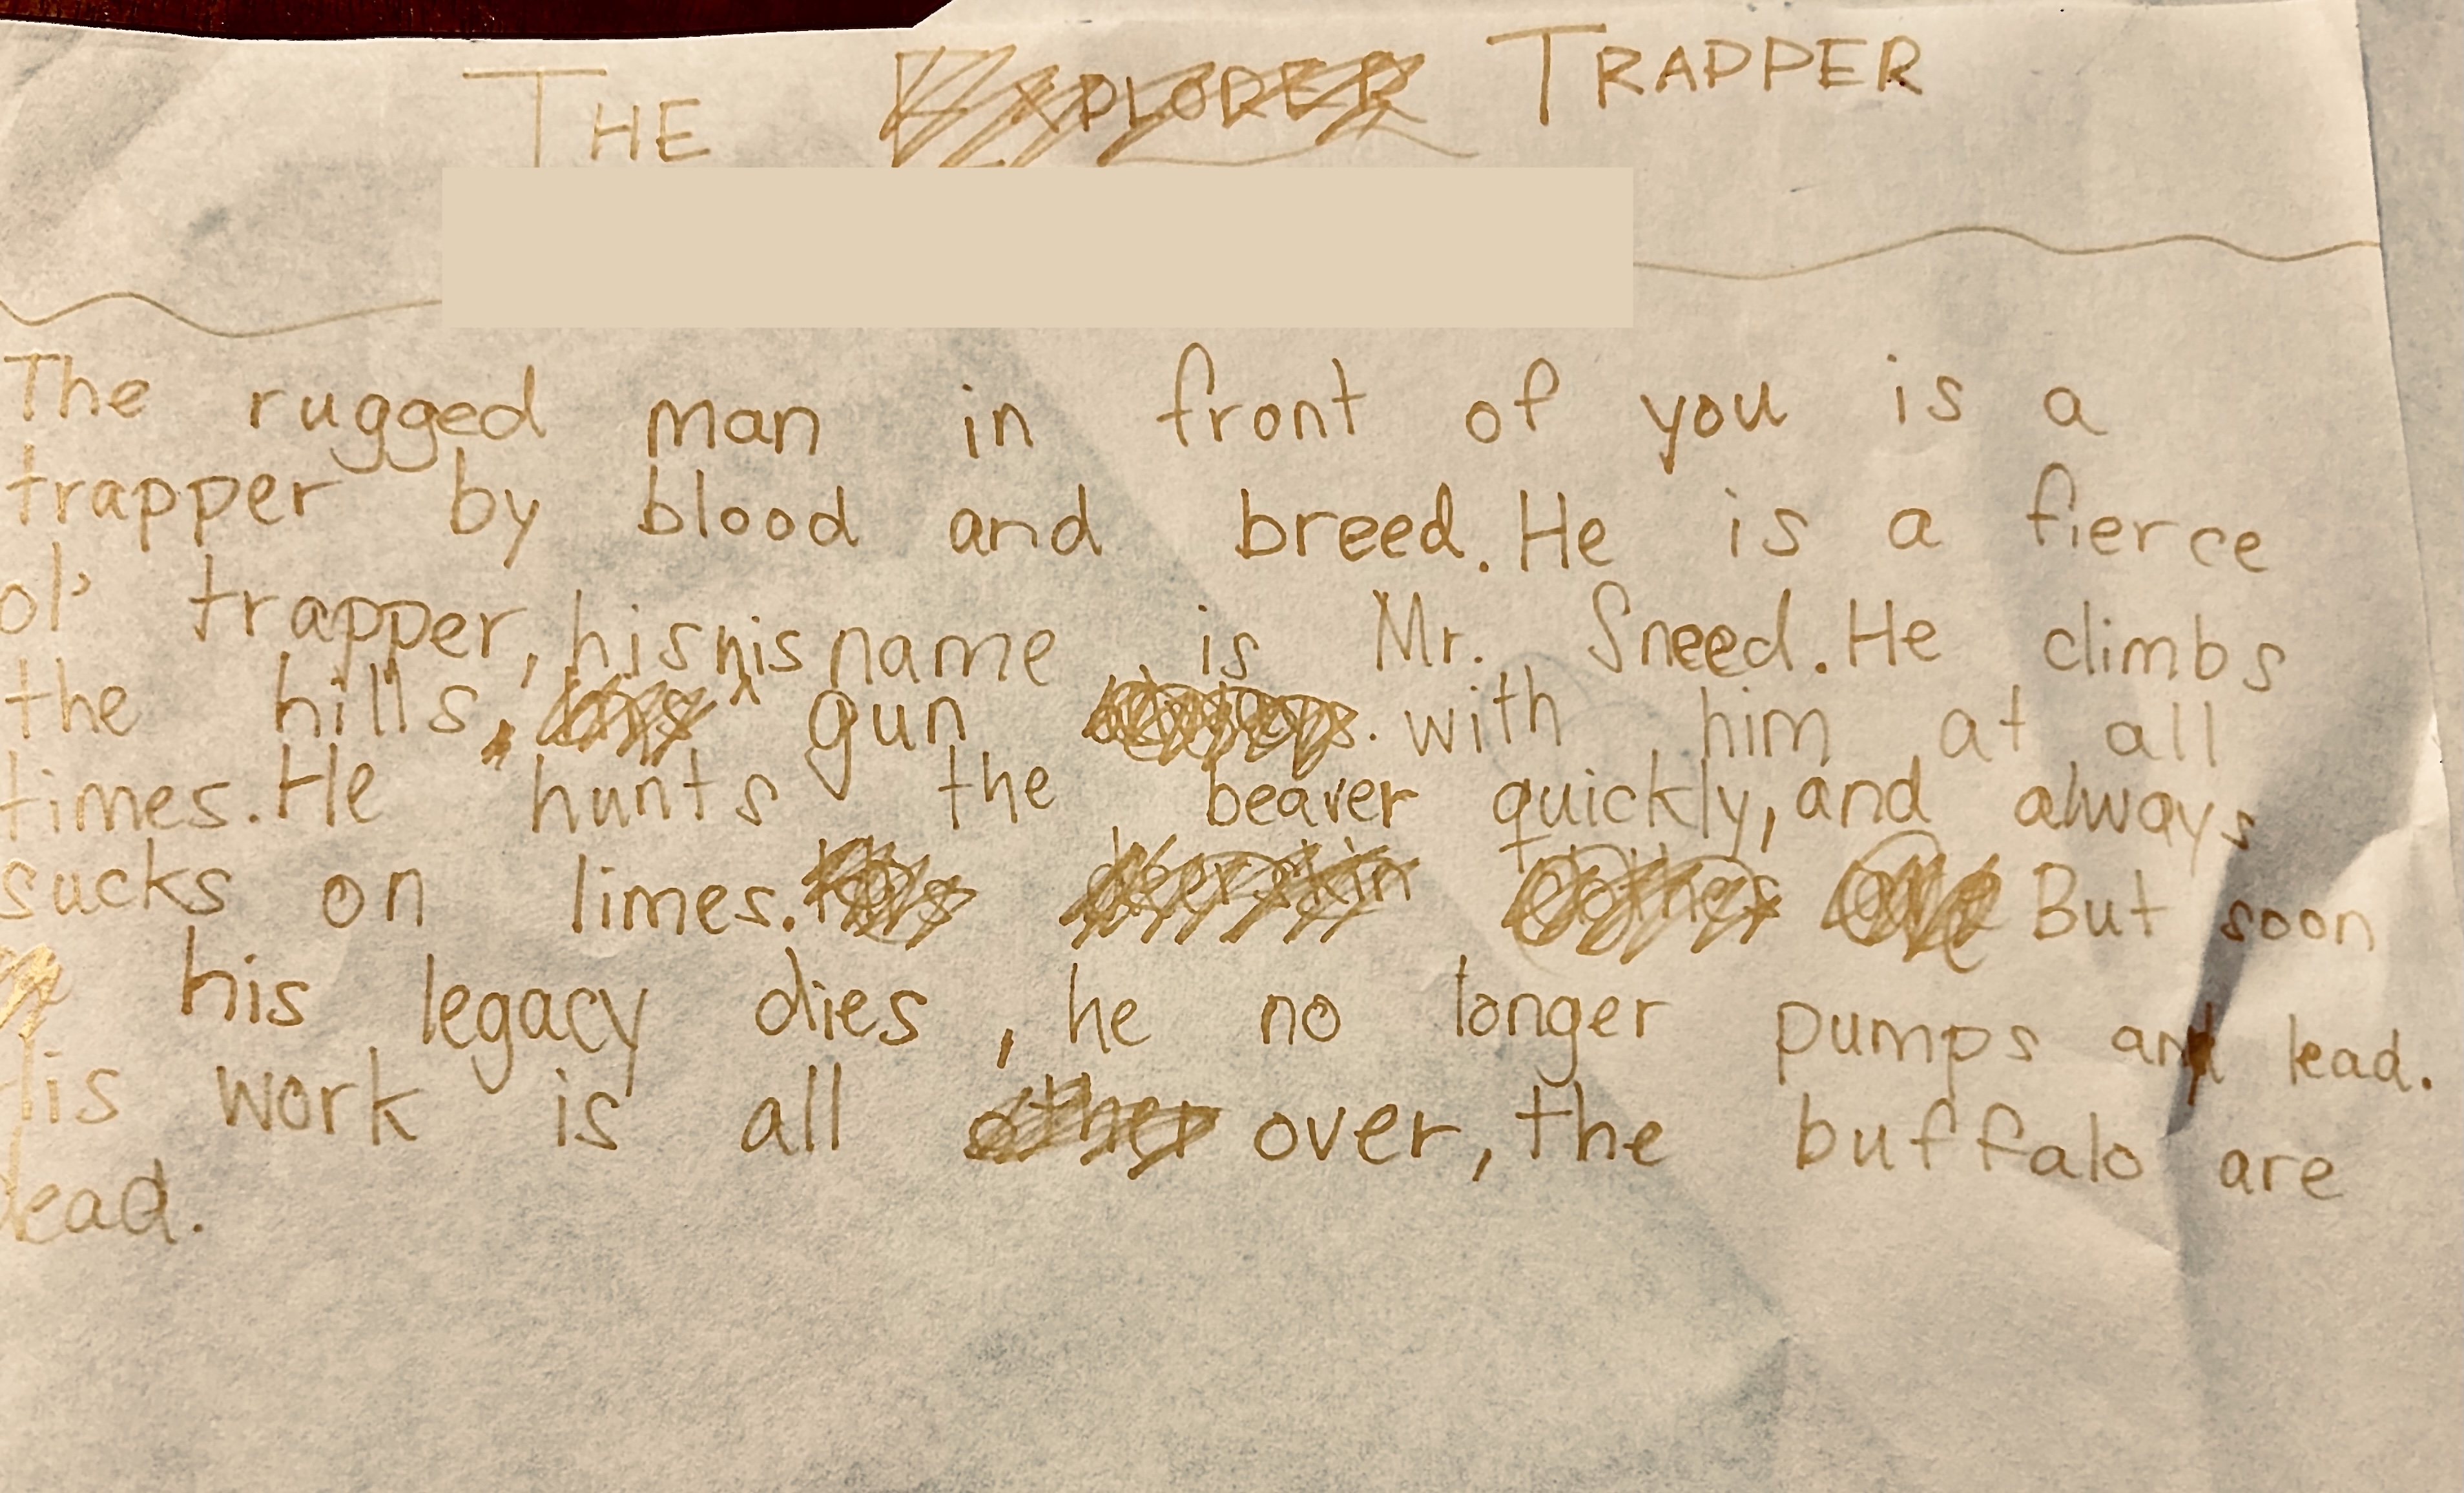 THE EXPLORER TRAPPER
The rugged man in front of you is a
trapper by blood and breed. He is a fierce
ol' trapper, his name is Mr. Sneed. He climbs
the hills, his his gun with him at all
times. He hunts the beaver quickly, and always
sucks on limes. His deerskin clothes are But soon
his legacy dies, he no longer pumps and lead.
His work is all other over, the buffalo are
dead.